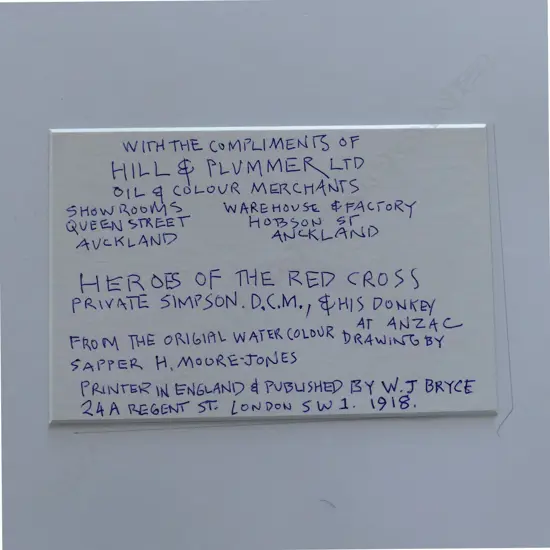 WITH THE COMPLIMENTS OF
HILL & PLUMMER LTD
OIL & COLOUR MERCHANTS
SHOWROOMS WAREHOUSE & FACTORY
QUEEN STREET HOBSON ST
AUCKLAND ANCKLAND
HEROES OF THE RED CROSS
PRIVATE SIMPSON. D.C.M., & HIS DONKEY
AT ANZAC
FROM THE ORIGIAL WATER COLOUR DRAWING BY
SAPPER H. MOORE-JONES
PRINTER IN ENGLAND & PUBLISHED BY W.J BRYCE
24A REGENT ST. LONDON SW1. 1918.